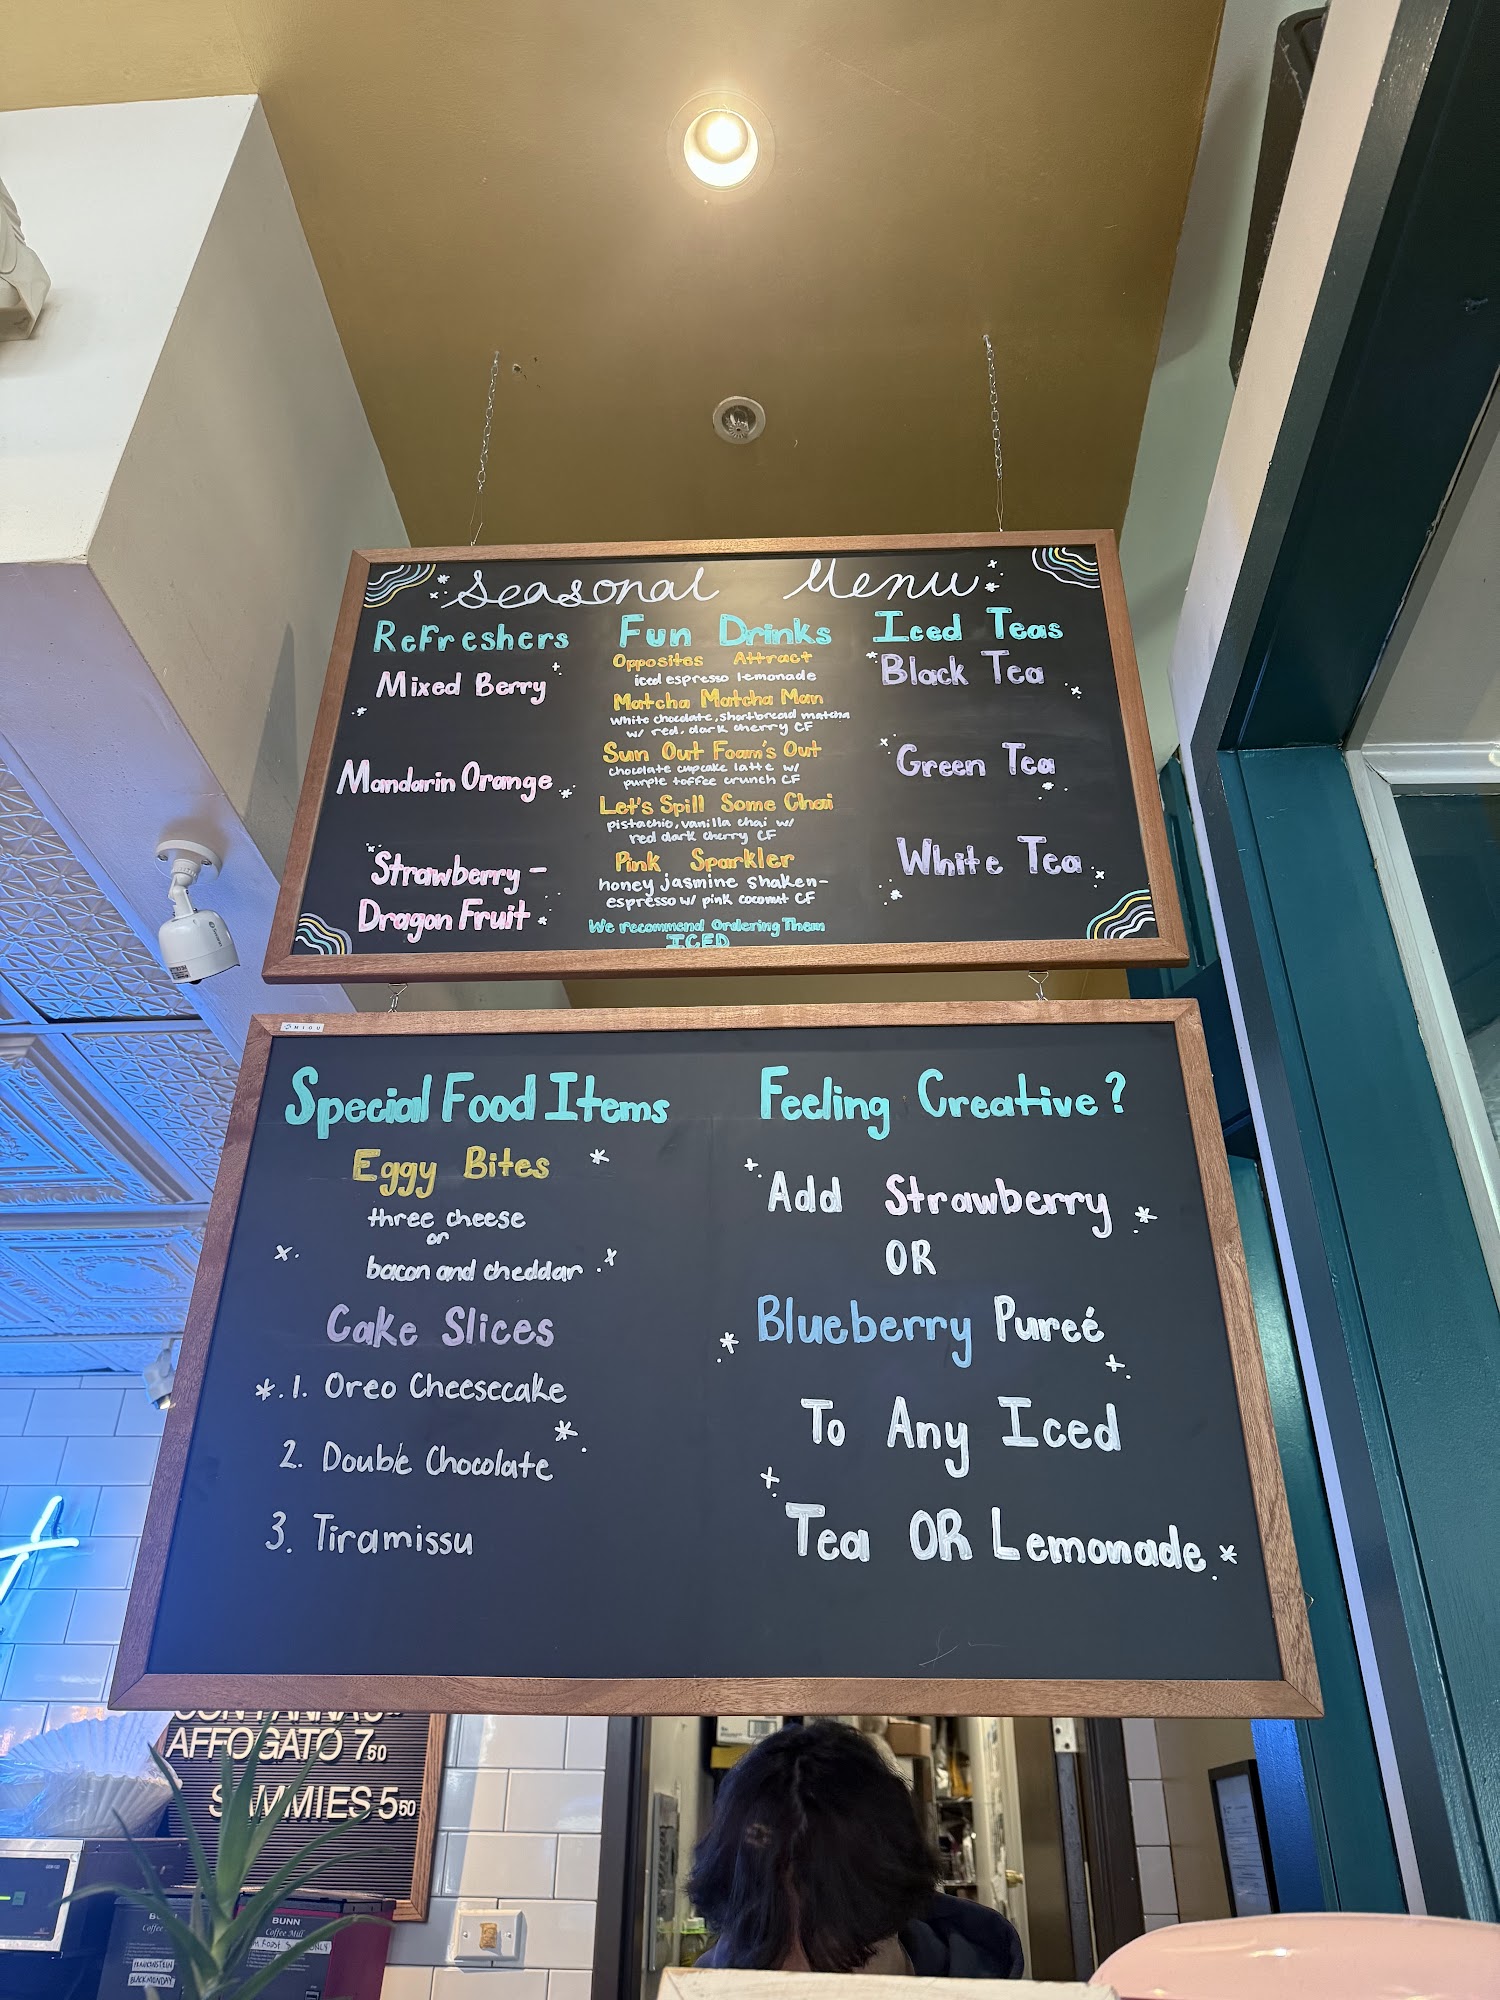 Seasonal Menu
Refreshers
Mixed Berry
Mandarin Orange
Strawberry -
Dragon Fruit
Fun Drinks
Opposites Attract
iced espresso lemonade
Matcha Matcha Man
white chocolate, shortbread matcha
w/ red, dark cherry CF
Sun Out Foam's Out
chocolate cupcake latte w/
purple toffee crunch CF
Let's Spill Some Chai
pistachio, vanilla chai w/
red dark cherry CF
Pink Sparkler
honey jasmine shaken-
espresso w/ pink coconut CF
We recommend Ordering Them
ICED
Iced Teas
Black Tea
Green Tea
White Tea
Special Food Items
Eggy Bites
three cheese
or
bacon and cheddar
Cake Slices
1. Oreo Cheesecake
2. Double Chocolate
3. Tiramissu
Feeling Creative?
Add Strawberry
OR
Blueberry Pureé
To Any Iced
Tea OR Lemonade
AFFOGATO 7 50
SAMMIES 5 50
BUNN
Coffee Mill
Coffee
FRANKENSTEIN
BLACK MONDAY